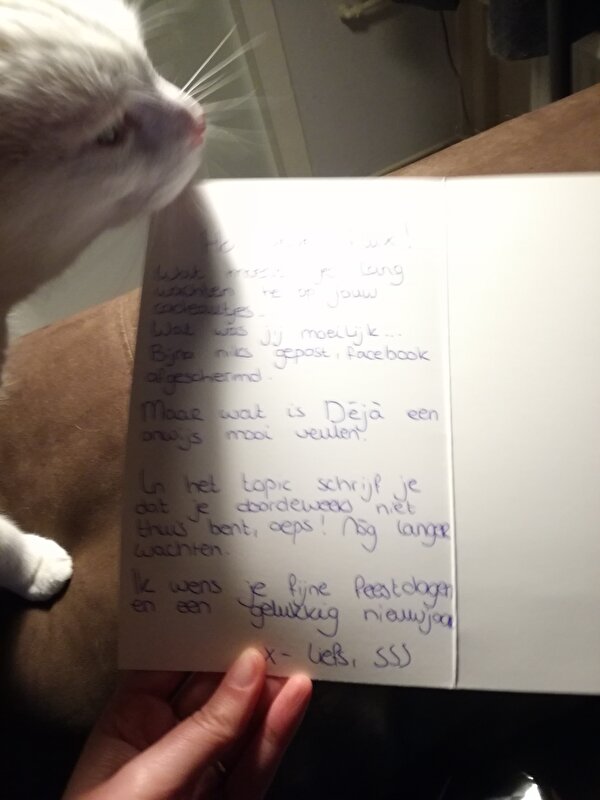 Wat moest je lang
wachten te op jouw
cadeautjes.
Wat was jij moeilijk...
Bijna niks gepost, facebook
afgeschermd.
Maar wat is Déjà een
onwijs mooi veulen.
In het topic schrijf je
dat je doordeweeks niet
thuis bent, oeps! Nóg langer
wachten.
Ik wens je fijne feestdagen
en een gelukkig nieuwjaar
x- liefs, SSS